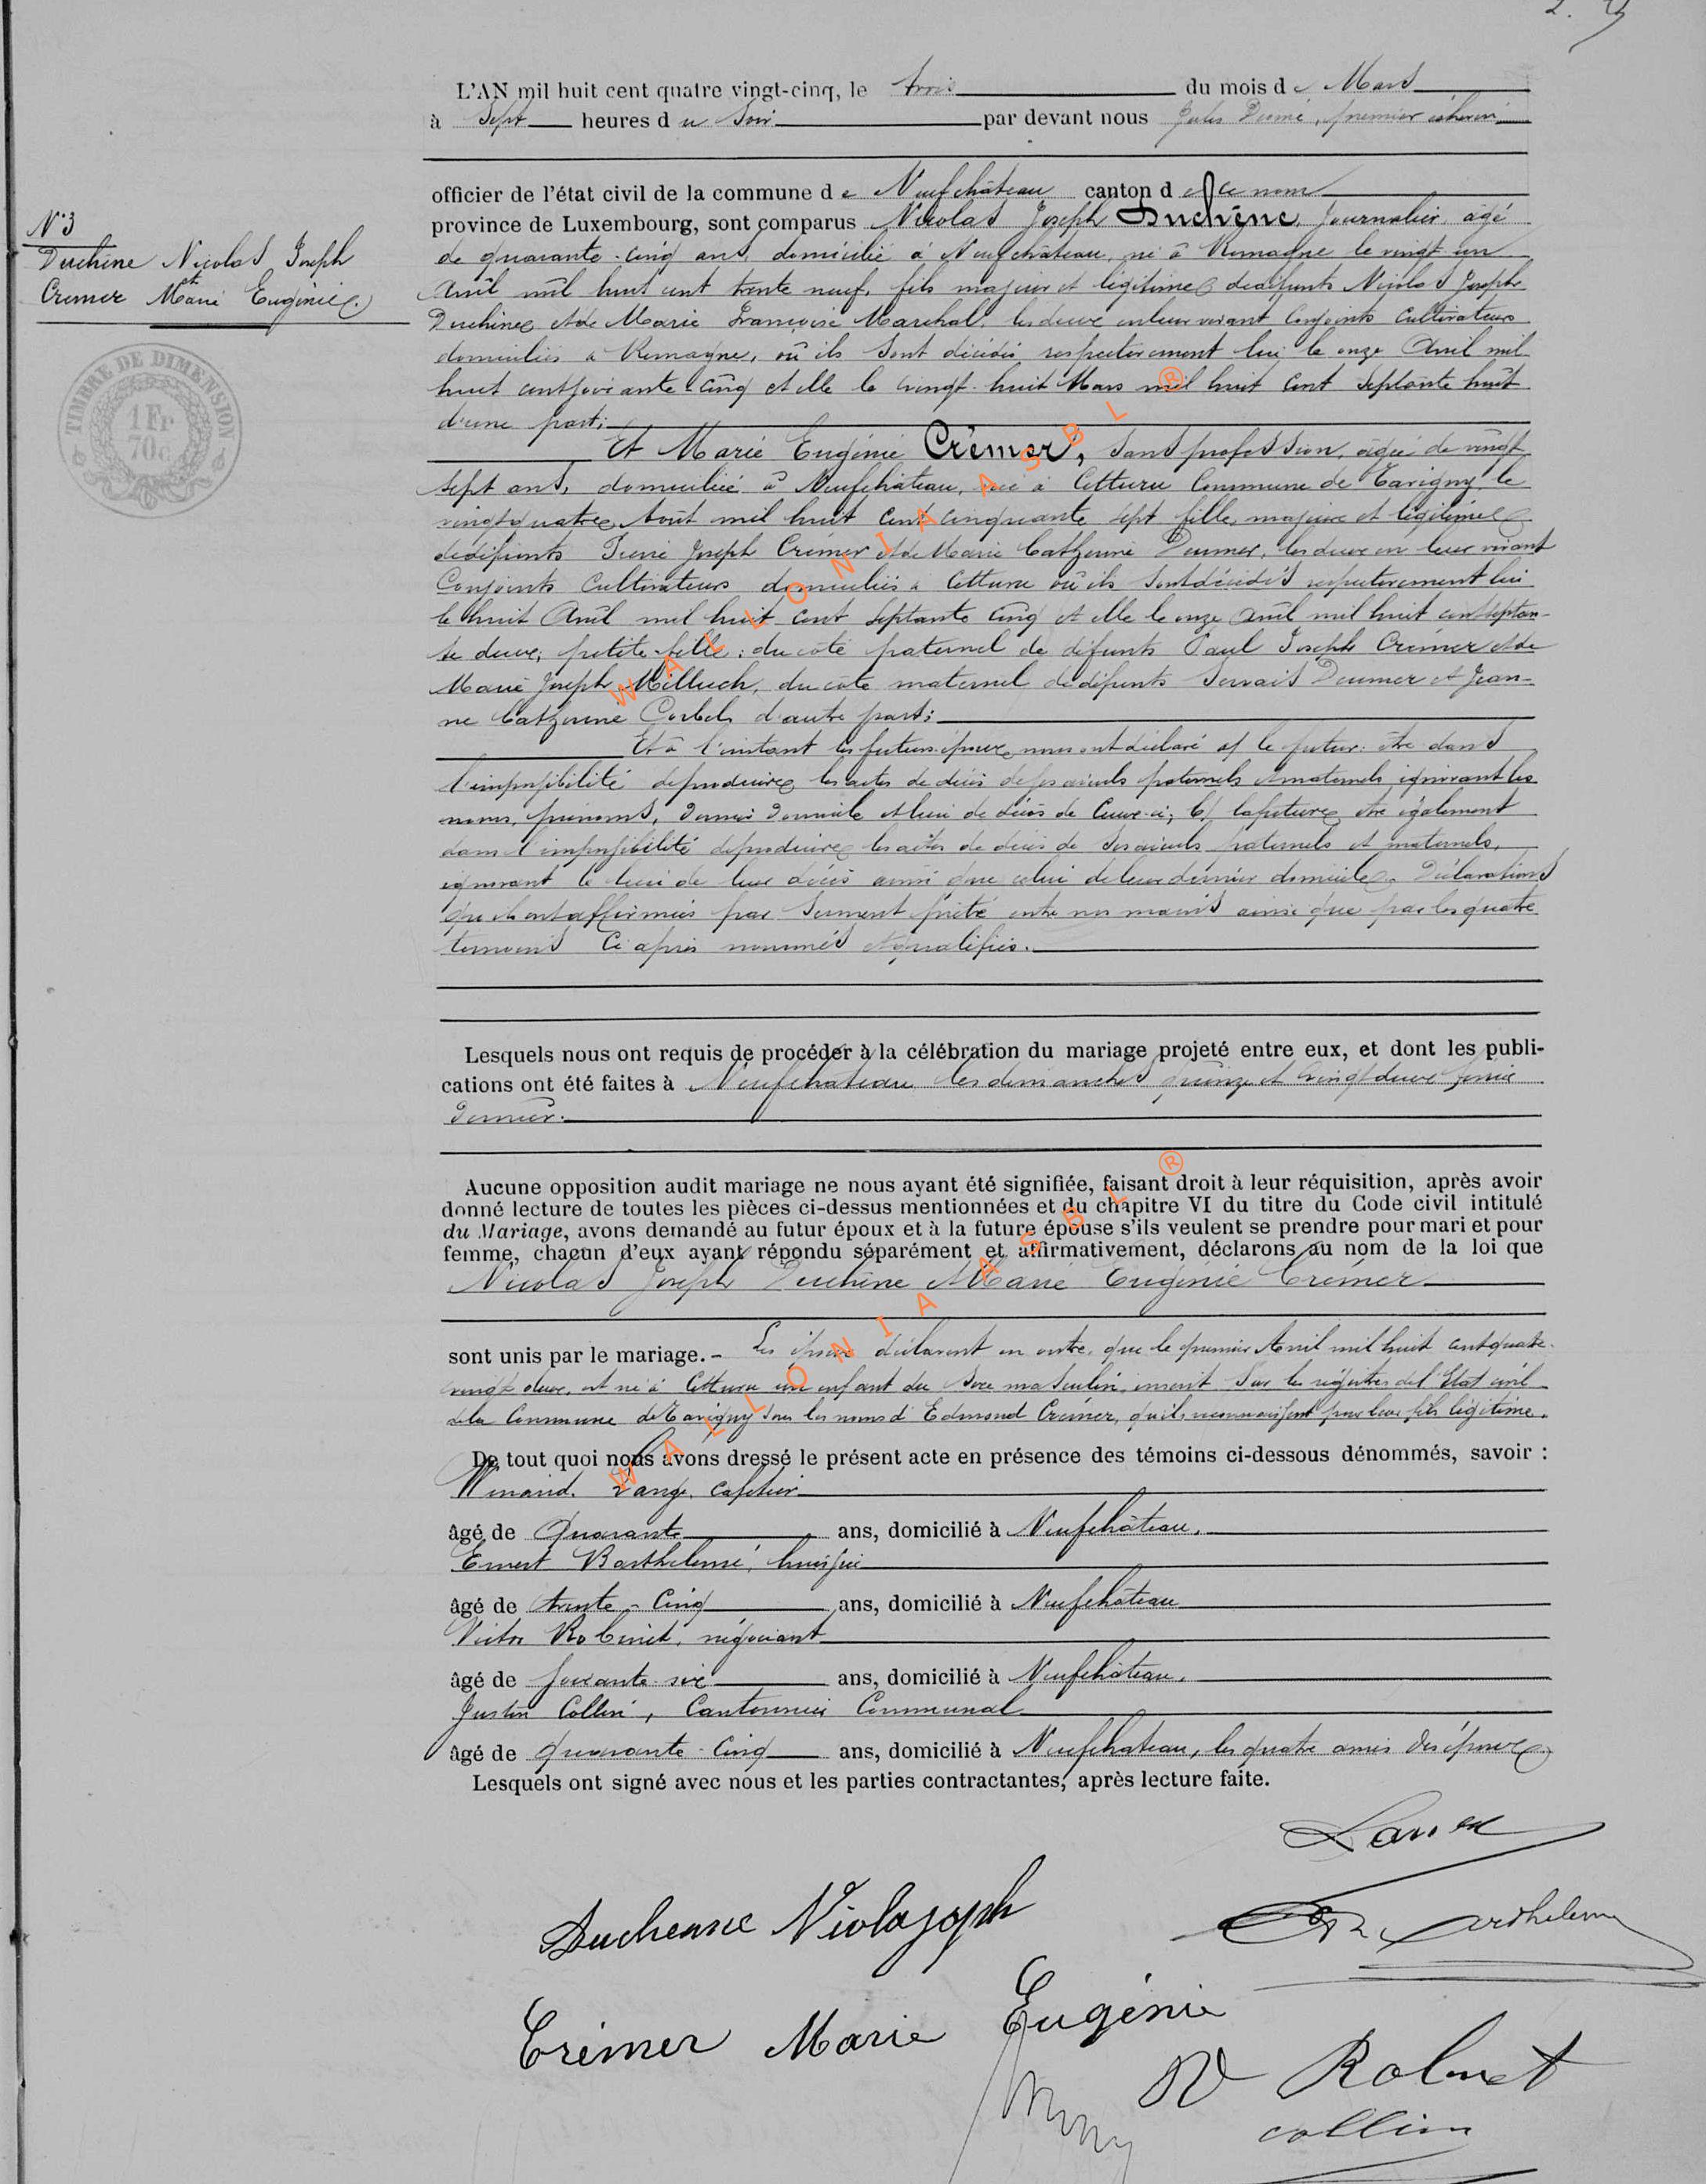 L'AN mil huit cent quatre vingt-cinq, le trois du mois de Mars
à Sept heures du Soir par devant nous Jules premier échevin
officier de l'état civil de la commune de Neufchâteau canton de ce nom
province de Luxembourg, sont comparus Nicolas Joseph Duchêne, Journalier, âgé
N°3
Duchêne Nicolas Joseph
et
Cremer Marie Eugénie.
de quarante-cinq ans, domicilié à Neufchâteau, né à Remagne le vingt un
Avril mil huit cent trente neuf, fils majeur et légitime de défunts Nicolas Joseph
Duchêne et de Marie Françoise Marchal, les deux en leur vivant Conjoints Cultivateurs
domiciliés à Remagne, où ils sont décédés respectivement lui le onze Avril mil
huit cent soixante-cinq et elle le vingt-huit Mars mil huit cent septante huit
d'une part;
TIMBRE DE DIMENSION
1 Fr
70c
Et Marie Eugénie Crémer, sans profession, âgée de vingt
sept ans, domiciliée à Neufchâteau, née à Cetturu Commune de Tavigny le
vingt quatre Août mil huit cent cinquante sept fille majeure et légitime
de défunts Joseph Crémer et de Marie Catherine Deumer, les deux en leur vivant
Conjoints Cultivateurs domiciliés à Cetturu où ils sont décédés respectivement lui
le huit Avril mil huit cent septante cinq et elle le onze Avril mil huit cent septan-
te deux; petite-fille: du côté paternel de défunts Paul Joseph Crémer et de
Marie Joseph du côté maternel de défunts Servais Deumer et Jean-
ne Catherine d'autre part;
Et à l'instant les futurs époux nous ont déclaré a/ le futur: être dans
l'impossibilité de produire les actes de décès de ses aïeuls paternels et maternels, ignorant les
noms, prénoms, dernier domicile et lieu de décès de Ceux-ci; b/ la future être également
dans l'impossibilité de produire les actes de décès de ses aïeuls paternels et maternels,
ignorant le lieu de leur décès ainsi que celui de leur dernier domicile. Déclarations
qu'ils ont affirmées par Serment prêté entre nos mains ainsi que par les quatre
témoins Ci après nommés et qualifiés.
Lesquels nous ont requis de procéder à la célébration du mariage projeté entre eux, et dont les publi-
cations ont été faites à Neufchâteau les dimanches quinze et vingt deux février
dernier.
Aucune opposition audit mariage ne nous ayant été signifiée, faisant droit à leur réquisition, après avoir
donné lecture de toutes les pièces ci-dessus mentionnées et du chapitre VI du titre du Code civil intitulé
du Mariage, avons demandé au futur époux et à la future épouse s'ils veulent se prendre pour mari et pour
femme, chacun d'eux ayant répondu séparément et affirmativement, déclarons au nom de la loi que
Nicolas Joseph Duchêne et Marie Eugénie Crémer
sont unis par le mariage.- Les époux déclarent en outre, que le premier Avril mil huit cent quatre-
vingt deux, est né à Cetturu un enfant du Sexe masculin, inscrit Sur les registres de l'Etat civil
de la Commune de Tavigny sous les noms d'Edmond Crémer, qu'ils reconnaissent pour leur fils légitime.
De tout quoi nous avons dressé le présent acte en présence des témoins ci-dessous dénommés, savoir :
Winand Lange, cafetier
âgé de Quarante ans, domicilié à Neufchâteau.
Ernest Barthelemi, huissier
âgé de trente-Cinq ans, domicilié à Neufchâteau
Victor Robinet, négociant
âgé de soixante-six ans, domicilié à Neufchâteau.
Justin Collin, Cantonnier Communal
âgé de quarante-Cinq ans, domicilié à Neufchâteau, les quatre amis des époux
Lesquels ont signé avec nous et les parties contractantes, après lecture faite.
Duchenne
Crémer Marie Eugénie
V Robinet
collin
WALLONIA ASBL ®
WALLONIA ASBL ®